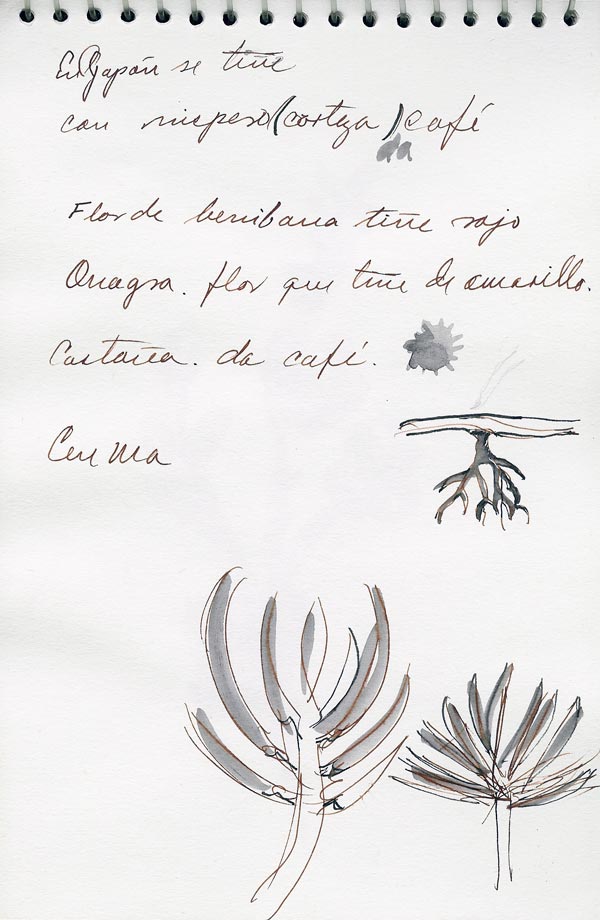 En Japón se tiñe
con níspero (corteza) café
da
Flor de benibana tiñe rojo
Onagra. flor que tiñe de amarillo.
Castaña. da café.